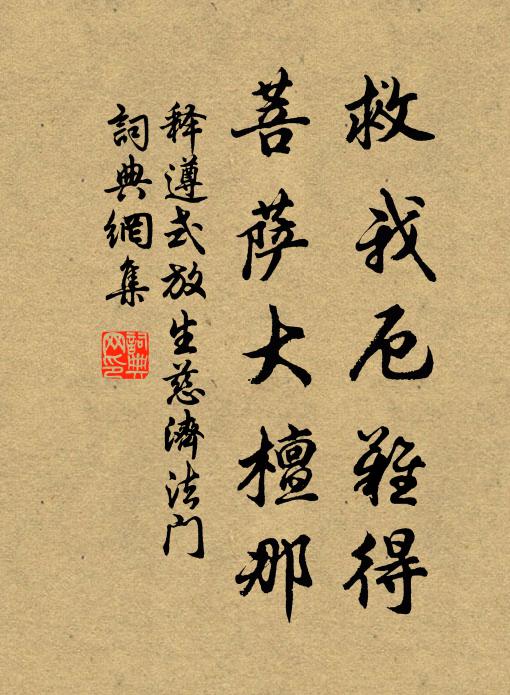 救我厄難得
菩萨大檀那
释遵式放生慈濟法门
詞典網集
詞典网印